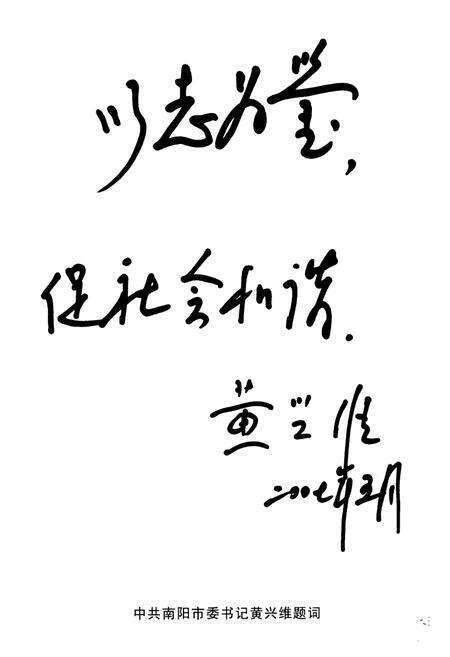 以志为鉴，
促社会和谐.
黄兴维
二〇〇七年五月
中共南阳市委书记黄兴维题词